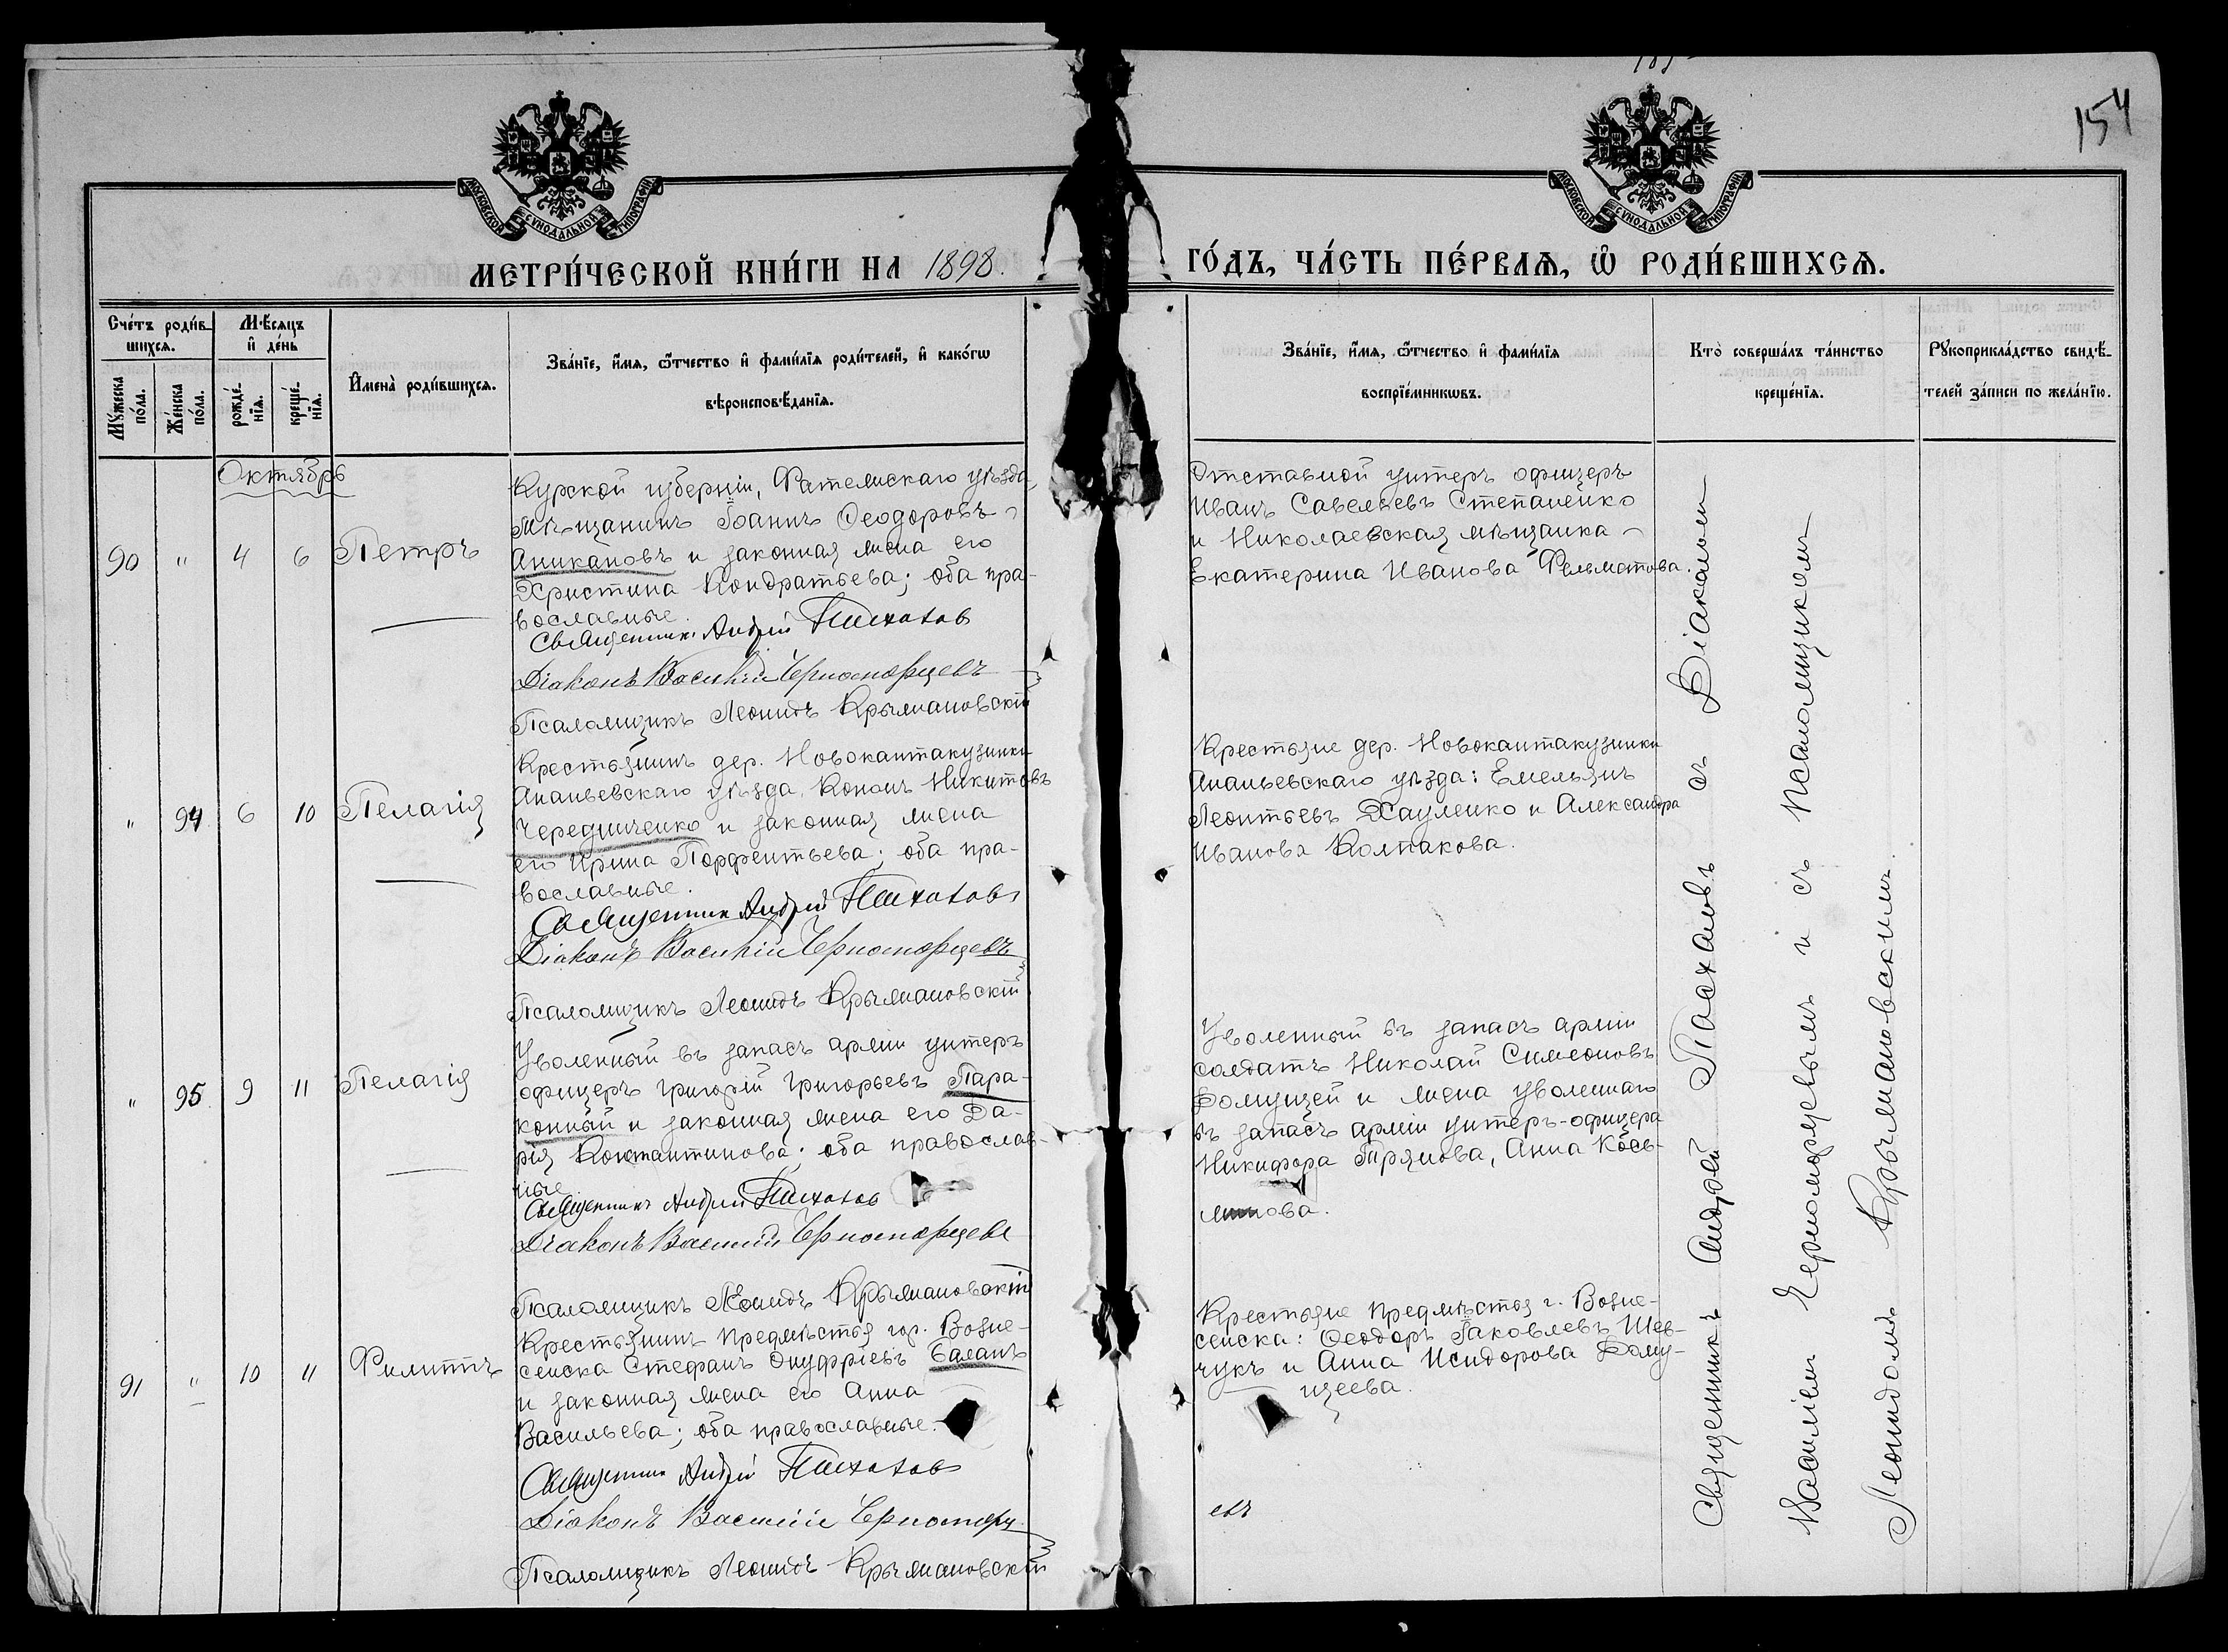 154
МОСКОВСКОЙ СѴНОДАЛЬНОЙ ТИПОГРАФІИ
МОСКОВСКОЙ СѴНОДАЛЬНОЙ ТИПОГРАФІИ
МЕТРИ́ЧЕСКОЙ КНИ́ГИ НА 1898.
ГО́ДЪ, ЧА́СТЬ ПЕ́РВАѦ, Ѽ РОДИ́ВШИХСѦ.
Сче́тъ роди́в-
шихся.
Мꙋ́жеска
по́ла.
Же́нска
по́ла.
Мѣ́сяцъ
и҆ де́нь
рожде́-
нїя.
креще́-
нїя.
И҆мена̀ роди́вшихся.
Зва́нїе, и҆́мя, ѻ҆́тчество и҆ фами́лїя роди́телей, и҆ како́гѡ
вѣроисповѣ́данїя.
Зва́нїе, и҆́мя, ѻ҆́тчество и҆ фами́лїя
воспрїе́мникѡвъ.
Кто̀ соверша́лъ та́инство
креще́нїя.
Рꙋкоприкла́дство свидѣ́-
телей за́писи по жела́нїю.
Октябрь
90 " 4 6 Петръ
Курской губерніи, Фатежскаго уѣзда,
Мѣщанинъ Іоаннъ Ѳеодоровъ
Аникановъ и законная жена его
Христина Кондратьева; оба пра-
вославные.
Священникъ Андрей Пасхаловъ
Діаконъ Василій Черноморцевъ
Псаломщикъ Леонидъ Крыжановскій
Отставной унтеръ офицеръ
Иванъ Савельевъ Степаненко
и Николаевская мѣщанка
Екатерина Иванова Фельматова.
" 94 6 10 Пелагія
Крестьянинъ дер. Новокантакузинки
Ананьевскаго уѣзда, Кононъ Никитовъ
Чередниченко и законная жена
его Ирина Порфентьева; оба пра-
вославные.
Священник Андрей Пасхаловъ
Діаконъ Василій Черноморцевъ
Псаломщикъ Леонидъ Крыжановскій
Крестьяне дер. Новокантакузинки
Ананьевскаго уѣзда: Емельянъ
Леонтьевъ Хауленко и Александра
Иванова Колпакова.
" 95 9 11 Пелагія
Уволенный въ запасъ арміи унтеръ
офицеръ Григорій Григорьевъ Пара-
конный и законная жена его Да-
рія Константинова; оба православ-
ные
Священникъ Андрей Пасхалов
Діаконъ Василій Черноморцевъ
Псаломщикъ Леонидъ Крыжановскій
Уволенный въ запасъ арміи
солдатъ Николай Симеоновъ
Домущей и жена уволеннаго
въ запасъ арміи унтеръ-офицера
Никифора Прянова, Анна Кось-
мова.
91 " 10 11 Филиппъ
Крестьянинъ предмѣстья гор. Возне-
сенска Стефанъ Онуфріевъ Баланъ
и законная жена его Анна
Васильева; оба православные.
Священник Андрей Пасхалов
Діаконъ Василій Черноморц
Псаломщикъ Леонидъ Крыжановскій
Крестьяне предмѣстья г. Возне-
сенска: Ѳеодоръ Іаковлевъ Шев-
чукъ и Анна Исидорова Дому-
щеева.
евъ
Священникъ Андрей Пасхаловъ съ Діакономъ
Василіемъ Черноморцевымъ и съ псаломщикомъ
Леонидомъ Крыжановскимъ